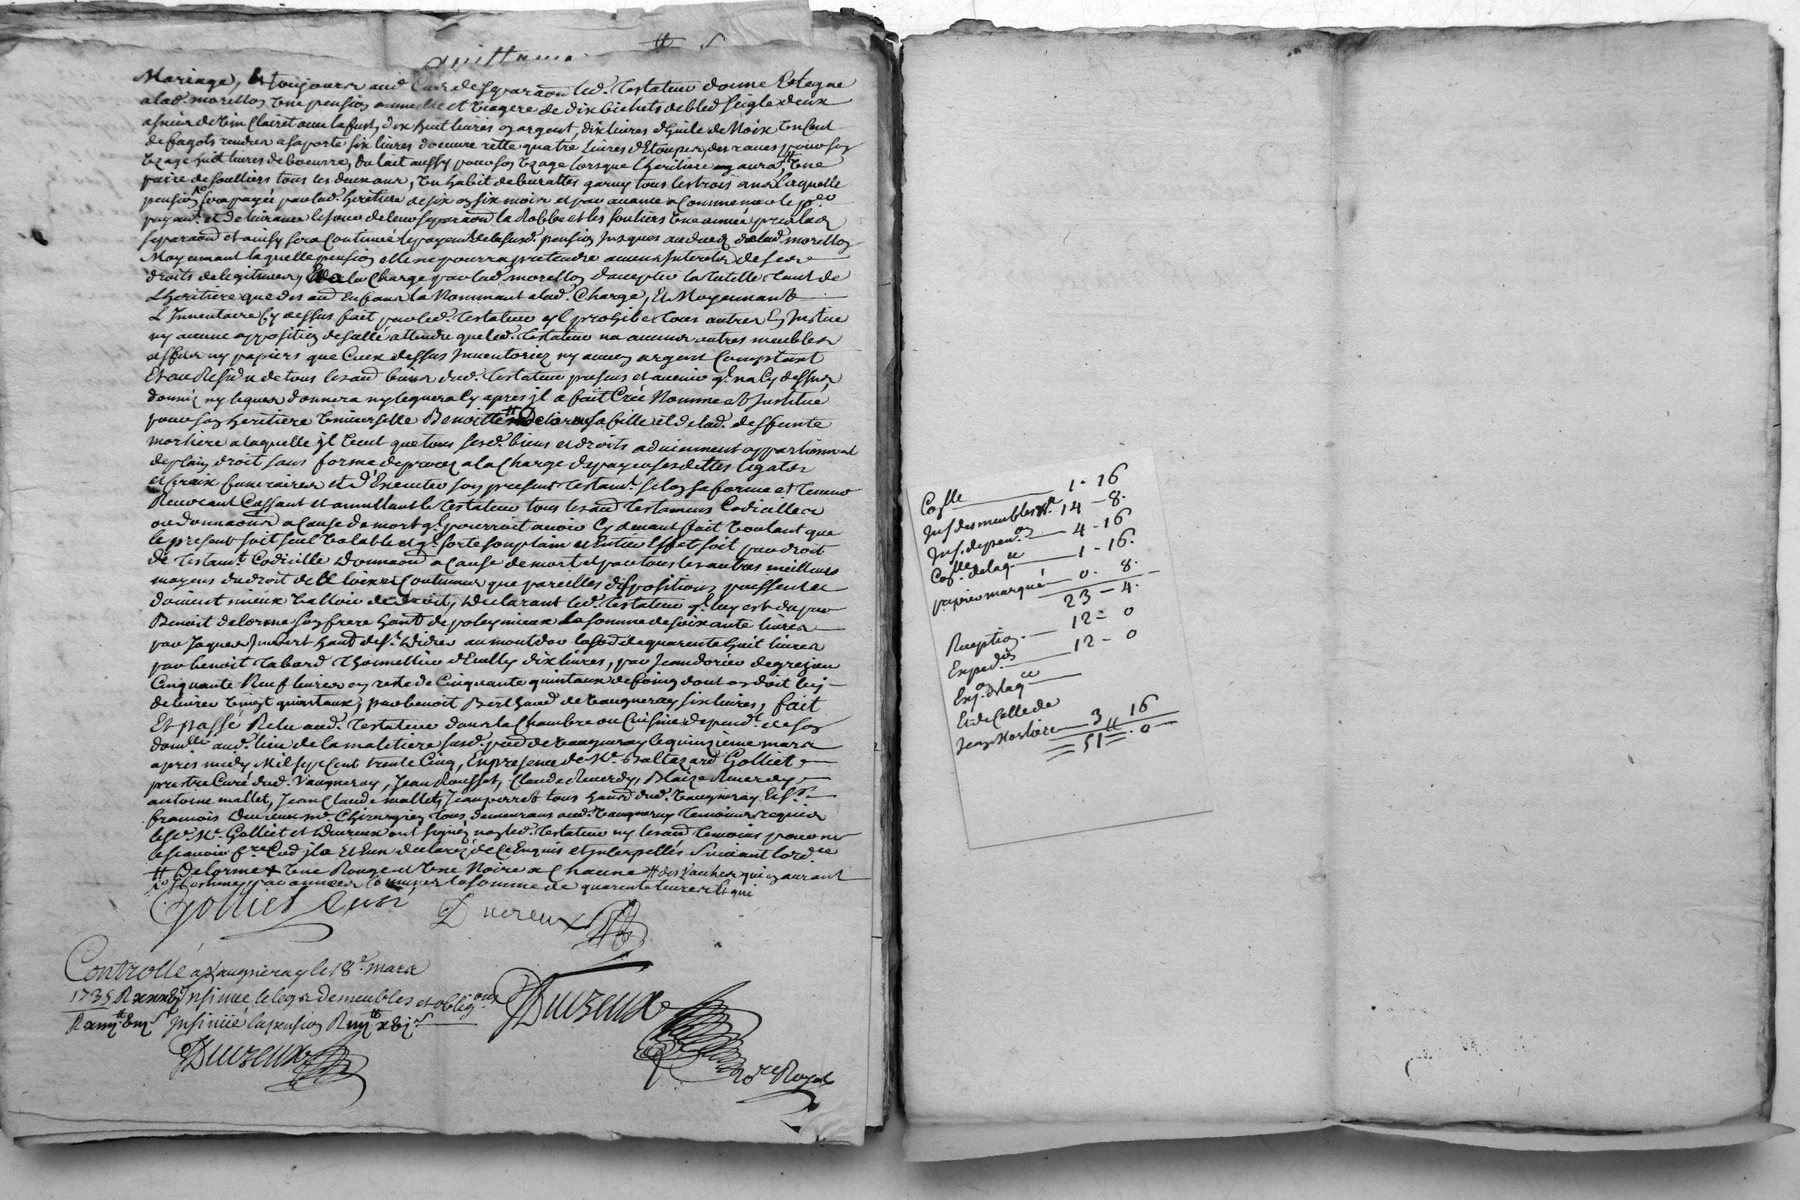 Mariage, Et toujours aud. Cas de separaon led. Testateur donne Et legue
a lad. morellon Une pension annuelle et viagere de dix bichets de bled seigle deux
asnées de Vin Clairet avec la fust, dix huit livres en argent, dix livres d'huile de Noix Un Cent
de fagots rendus a sa porte six livres d'oeuvre rette quatre livres d'Etoupes, des raves pour son
Uzage huit livres de boeurre, du lait aussy pour son Uzage lorsque L'heritiere en aura, Une
paire de soulliers tous les deux ans, Un habit de burattes garny tous les trois ans Laquelle
pension sera payée par lad. heritiere de six en six mois et par avance a Commencer le per
payemt et delivrance le jour de leur separaon la Robbe et les souliers Une année apres lad.
separaon et ainsy sera Continué le payemt de la susd. pension jusques au deceds de lad. morellon
Moyennant laquelle pension elle ne pourra pretendre aucuns Interets de ses
droits de legitimes, a la Charge par lad. morellon d'accepter la tutelle tant de
L'heritiere que des aud. Enfans la Nommant a lad. Charge, Et Moyennant
L'Inventaire Cy dessus fait par led. testateur il prohibe tous autres En Justice
ny aucune apposition de scellé attendu que led. Testateur na aucuns autres meubles
effets ny papiers que Ceux dessus Inventoriez ny aucun argent Comptant
Et au Residu de tous les aud. biens dud. Testateur presens et avenir ql. na Cy dessus
donné ny legués donnera ny leguera Cy apres il a fait Créé Nommé et Institué
pour son heritiere Universelle Benoitte Delorme sa fille et de lad. deffunte
morliere a laquelle il Veut que tous sesd. biens et droits adviennent appartiennent
de plain droit sans forme de procez a la Charge de payer ses dettes legats
et fraix funeraires et d'Executer son present testamt. selon sa forme et teneur
Revocant Cassant et annullant le Testateur tous lesaud. Testamens Codicilles
ou donnaons a Cause de mort ql. pourroit avoir Cy devant fait Voulant que
le present soit seul Valable et ql. sorte son plain et Entier Effet soit par droit
de testamt. Codicille donnaon a Cause de mort et par tous les autres meilleurs
moyens du droit de loix et Coutumes que pareilles dispositions puissent et
doivent mieux Valloir de droit, Declarant led. Testateur ql. luy est du par
Benoit delorme son frere habt. de poleymieux la somme de soixante livres
par Jaques Imbert habt. de St. Didier au mont dor la sode de quarente huit livres
par benoit tabard d'Eully dix livres, par Jean dorier de grezieu
Cinquante Neuf livres en reste de Cinquante quintaux de foing dont on doit luy
delivrer Vingt quintaux, par benoit Berthaud de Vaugneray six livres, fait
Et passé Relu aud. Testateur dans la Chambre ou Cuisine dependt. de son
domlle aud. lieu de la maletiere susd. psse de Vaugneray le quinzieme mars
apres midy Mil sept Cent trente Cinq, En presence de Mr. Baltezard Golliet
prestre Curé dud. Vaugneray, Jean Rousset, Claude Rverdy, Blaize Rverdy
antoine mallet, Jean Claude mallet, Jean perret tous habts dud. Vaugneray Et Sr.
francois Ducreux Me. Chirurgien tous demeurans aud. Vaugneray temoins requis
lesd. Mr. Golliet et Ducreux ont signéz non led. Testateur ny les aud. temoins pour ne
le scavoir fre Cud. jls Et Eux declarés de Ce Enquis et Interpellés suivant lordce
# Delorme + Une Rouge et Une Noire a Chacune # des Vaches qui en auront
Golliet Curé Ducreux
Controllé a Vaugneray le 18e. mars
1735 R Insinué le legs de meubles et obligons
R Insinué la pension R
Ducreux
Ducreux
Nore Royal
Colle 1 - 16
Ins. des meubles 14 - 8.
Ins. de pen. 4 - 16
Colle. de laqe. 1 - 16.
papier marqué 0. 8.
23 - 4.
Reception 12 = 0
Expedon 12 - 0
Exp. de laqe
Et de Celle de
Jean Morliere 3 16
51 tt. 0